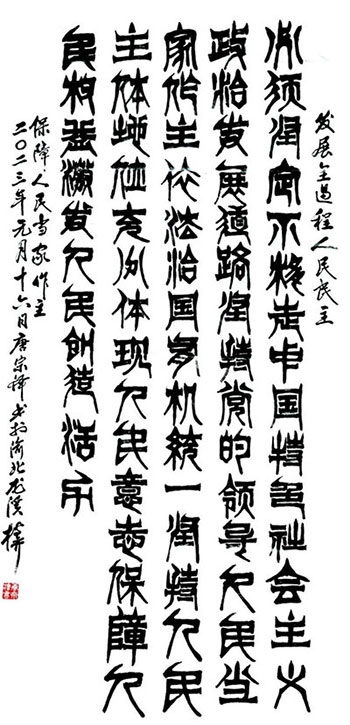 发展全过程人民民主
必须坚定不移走中国特色社会主义
政治发展道路坚持党的领导人民当
家作主依法治国有机统一坚持人民
主体地位充分体现人民意志保障人
民权益激发人民创造活力
保障人民当家作主
二〇二三年元月十六日唐宗书于渝北龙溪